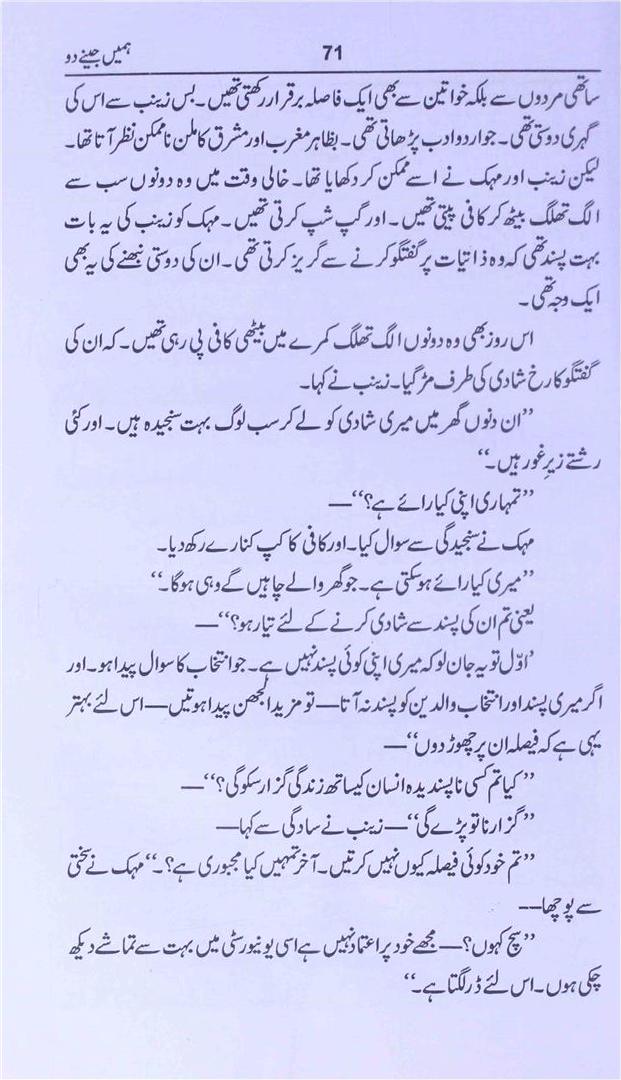 ہمیں جینے دو
71
ساتھی مردوں سے بلکہ خواتین سے بھی ایک فاصلہ برقرار رکھتی تھیں۔ بس زینب سے اس کی
گہری دوستی تھی۔ جو اردو ادب پڑھاتی تھی۔ بظاہر مغرب اور مشرق کا ملن ناممکن نظر آتا تھا۔
لیکن زینب اور مہک نے اسے ممکن کر دکھایا تھا۔ خالی وقت میں وہ دونوں سب سے
الگ تھلگ بیٹھ کر کافی پیتی تھیں۔ اور گپ شپ کرتی تھیں۔ مہک کو زینب کی یہ بات
بہت پسند تھی کہ وہ ذاتیات پر گفتگو کرنے سے گریز کرتی تھی۔ ان کی دوستی نبھنے کی یہ بھی
ایک وجہ تھی۔
اس روز بھی وہ دونوں الگ تھلگ کمرے میں بیٹھی کافی پی رہی تھیں۔ کہ ان کی
گفتگو کا رخ شادی کی طرف مڑ گیا۔ زینب نے کہا۔
”ان دنوں گھر میں میری شادی کو لے کر سب لوگ بہت سنجیدہ ہیں۔ اور کئی
رشتے زیرِ غور ہیں۔“
”تمہاری اپنی کیا رائے ہے؟“—
مہک نے سنجیدگی سے سوال کیا۔ اور کافی کا کپ کنارے رکھ دیا۔
”میری کیا رائے ہو سکتی ہے۔ جو گھر والے چاہیں گے وہی ہوگا۔“
یعنی تم ان کی پسند سے شادی کرنے کے لئے تیار ہو؟“—
’اوّل تو یہ جان لو کہ میری اپنی کوئی پسند نہیں ہے۔ جو انتخاب کا سوال پیدا ہو۔ اور
اگر میری پسند اور انتخاب والدین کو پسند نہ آتا— تو مزید الجھن پیدا ہوتیں— اس لئے بہتر
یہی ہے کہ فیصلہ ان پر چھوڑ دوں“—
”کیا تم کسی ناپسندیدہ انسان کیساتھ زندگی گزار سکو گی؟“—
”گزارنا تو پڑے گی“— زینب نے سادگی سے کہا—
”تم خود کوئی فیصلہ کیوں نہیں کرتیں۔ آخر تمہیں کیا مجبوری ہے؟۔“ مہک نے سختی
سے پوچھا—
”سچ کہوں؟— مجھے خود پر اعتماد نہیں ہے اسی یونیورسٹی میں بہت سے تماشے دیکھ
چکی ہوں۔ اس لئے ڈر لگتا ہے۔“